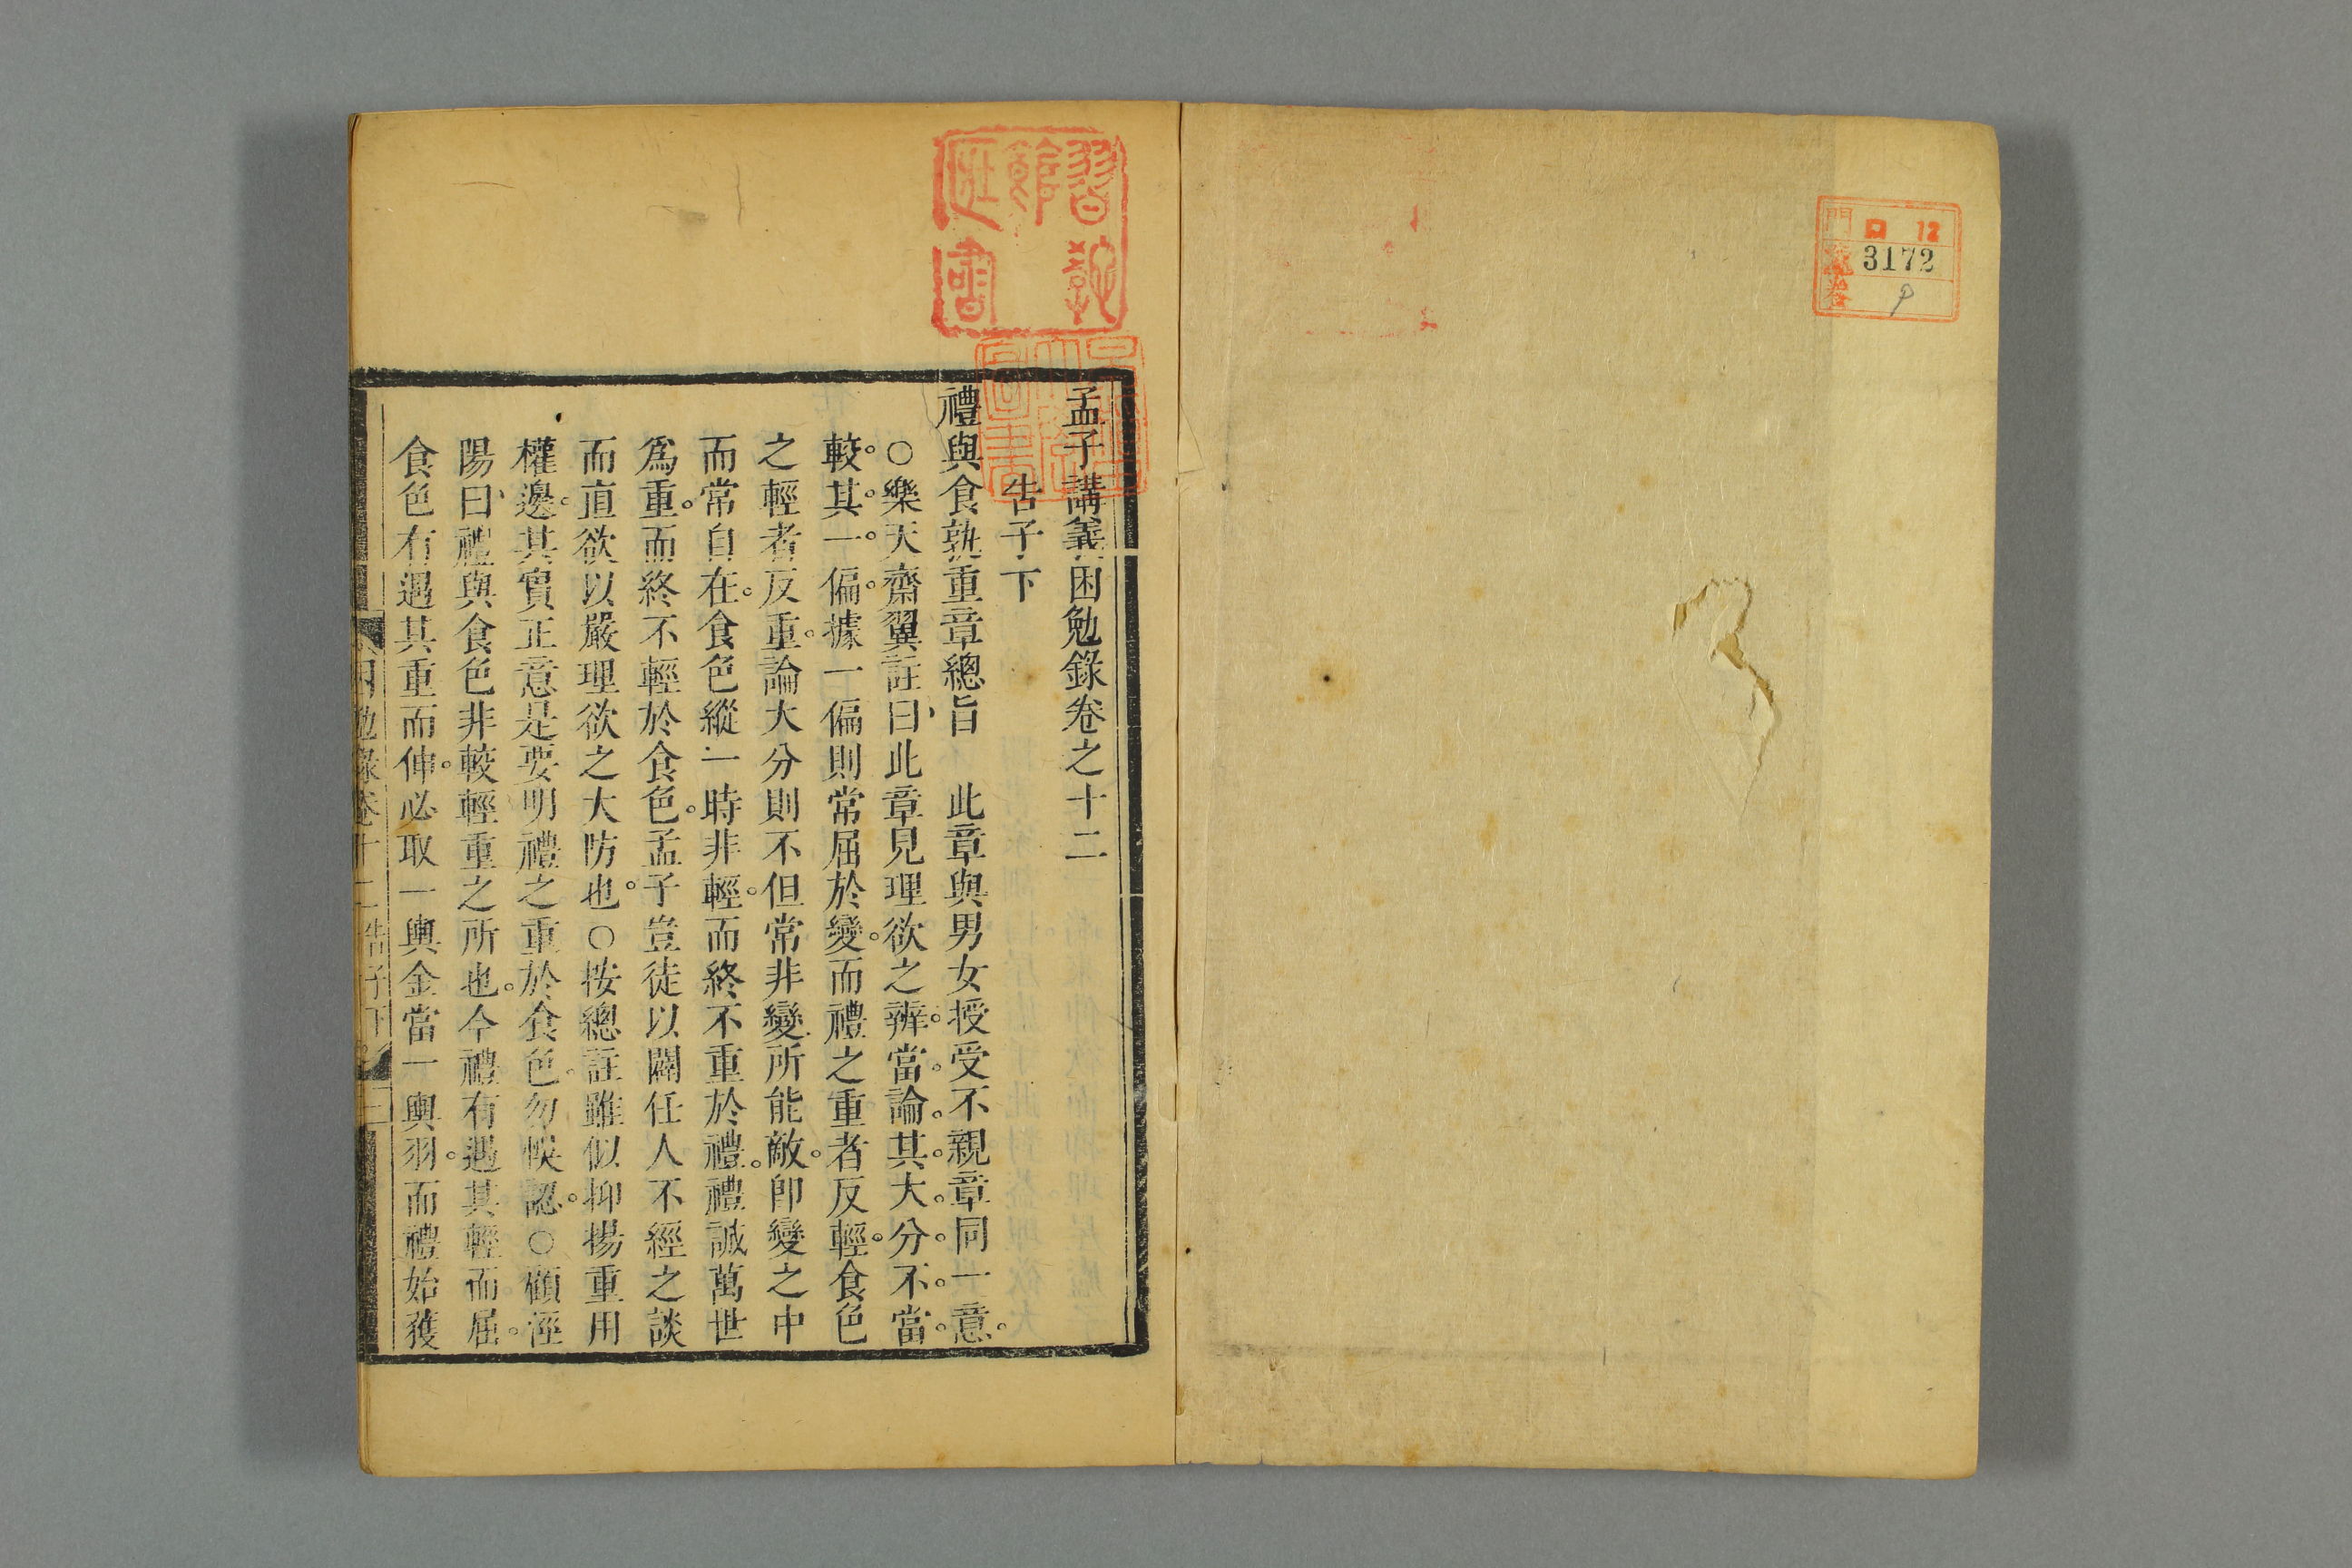 門 ロ 12
號 3172
卷 9
習說館藏書
早稻田大學圖書
孟子講義困勉錄卷之十二
告子下
禮與食孰重章總旨 此章與男女授受不親章同一意。
○樂天齋翼註曰此章見理欲之辨。當論其大分。不當
較其一偏。據一偏則常屈於變。而禮之重者反輕。食色
之輕者反重。論大分則不但常非變所能敵。卽變之中
而常自在。食色縱一時非輕。而終不重於禮。禮誠萬世
爲重。而終不輕於食色。孟子豈徒以闢任人不經之談
而直欲以嚴理欲之大防也。○按總註雖似抑揚重用
權邊。其實正意是要明禮之重於食色。勿悞認。○顧涇
陽曰禮與食色非較輕重之所也。今禮有遇其輕而屈。
食色有遇其重而伸。必取一輿金當一輿羽。而禮始獲
困勉錄卷十二告子下 一